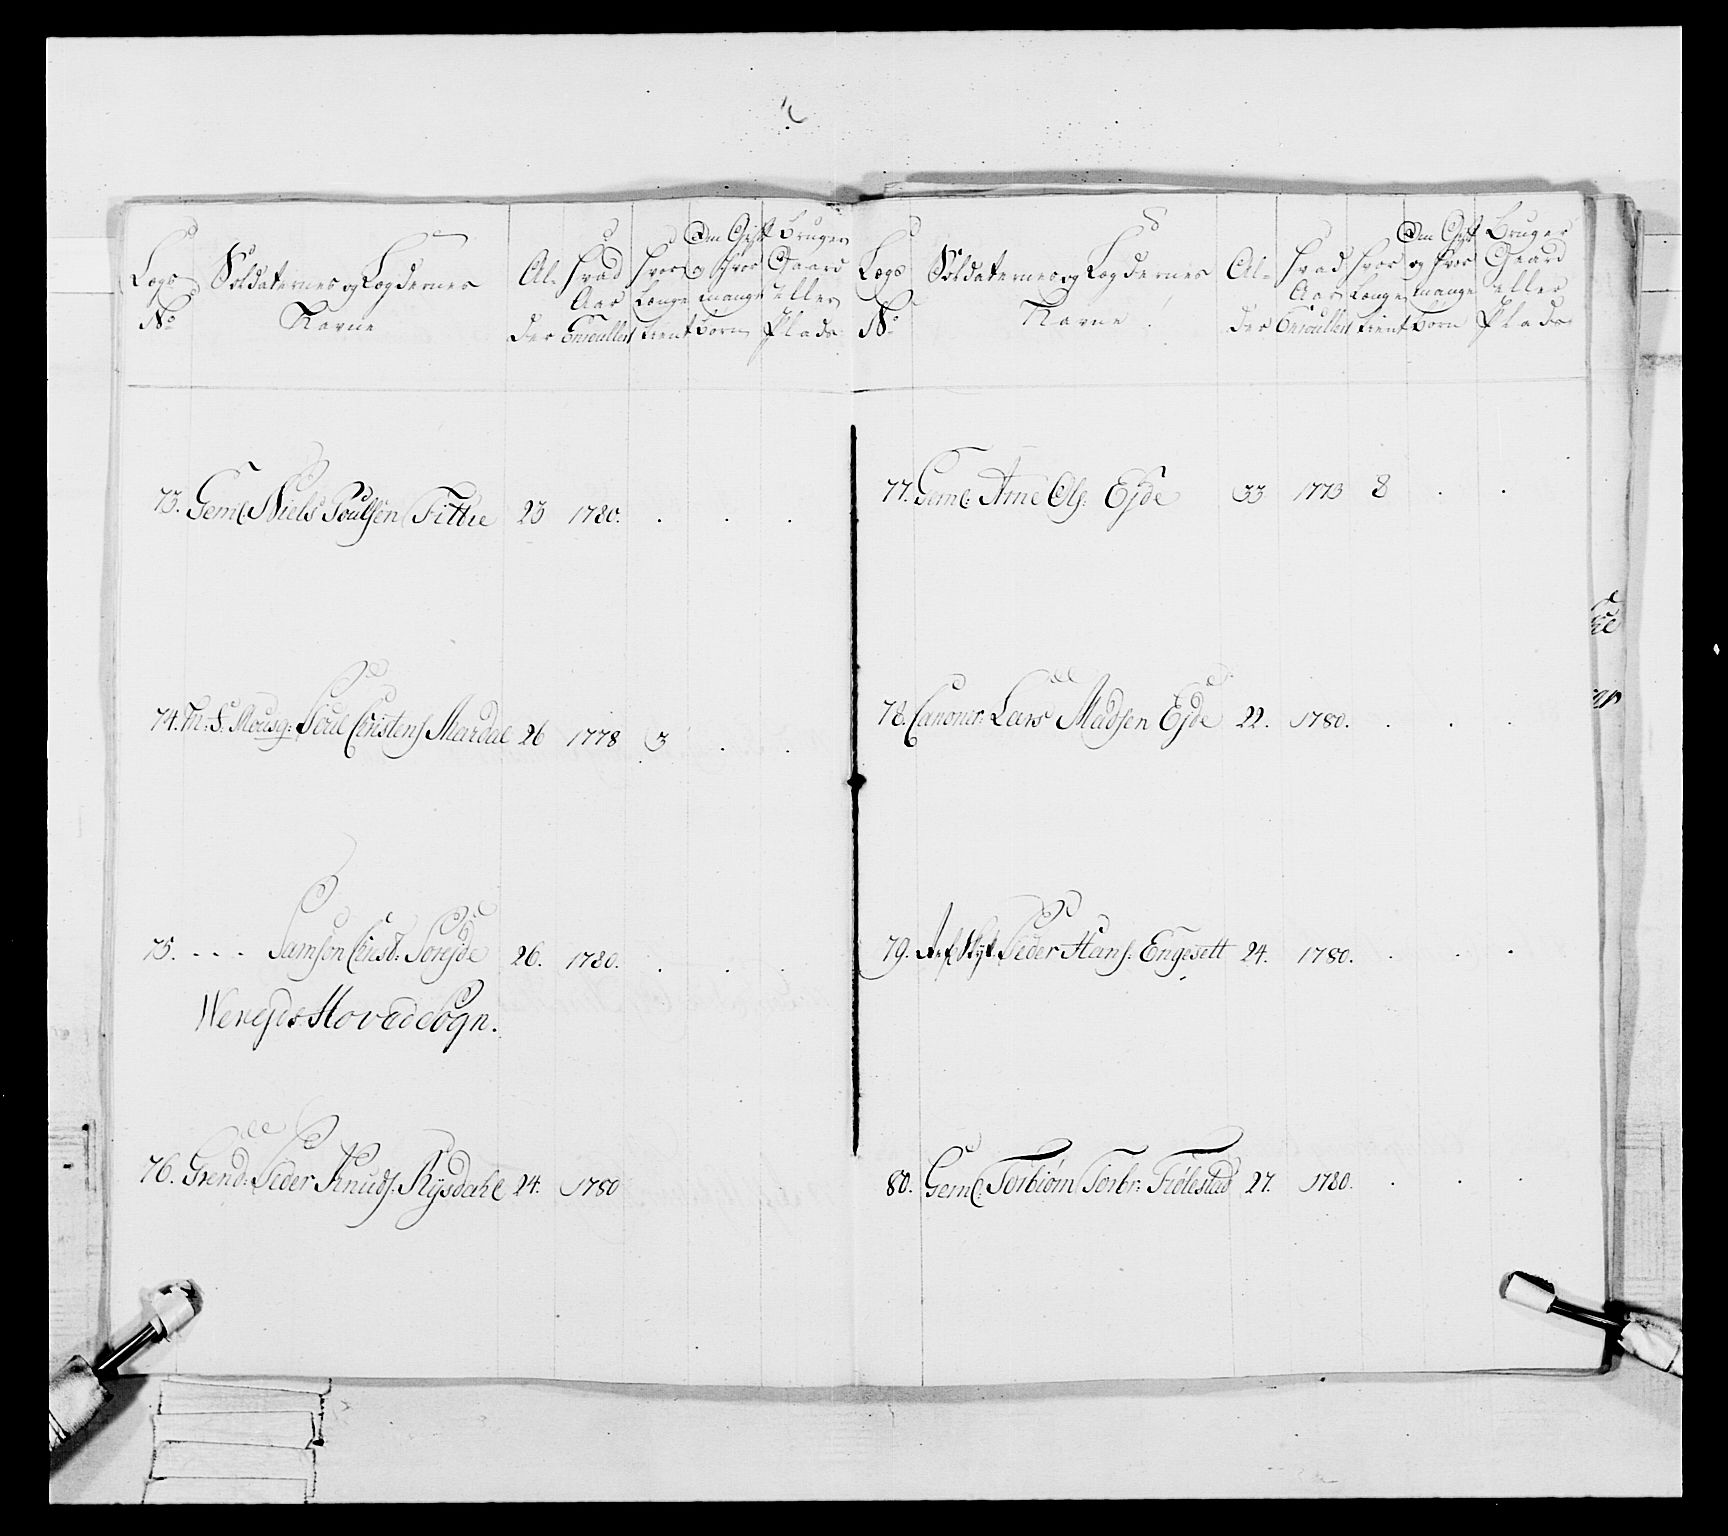 Legs No
Soldaternes og Legdernes Navne
Alder
Hvad Aar Enroullert
Hvor Længe tient
Om Gift og hvor mange børn
Bruger Gaard eller Plads
73. Geml. Niels Poulsen Fittie 23 1780. . . .
74. Poul Christens Mardal 26 1778 3 . .
75. - - - Samson Christ: Sorejde 26. 1780. . . .
Werejds Hoved Sogn.
76. Grend: Peder Knuds. Rysdahl 24. 1780
Legs No
Soldaternes og Legdernes Navne
Alder
Hvad Aar Enroullert
Hvor Længe tient
Om Gift og hvor mange børn
Bruger Gaard eller Plads
77. Geml: Arne Ols: Ejde 33 1773 8 . .
78. Canoner: Lars Madsen Ejde 22. 1780. . . .
79. Peder Hans: Engesett 24. 1780. . . .
80. Geml: Torbiørn Torbr: Fiølestad 27. 1780. . . .